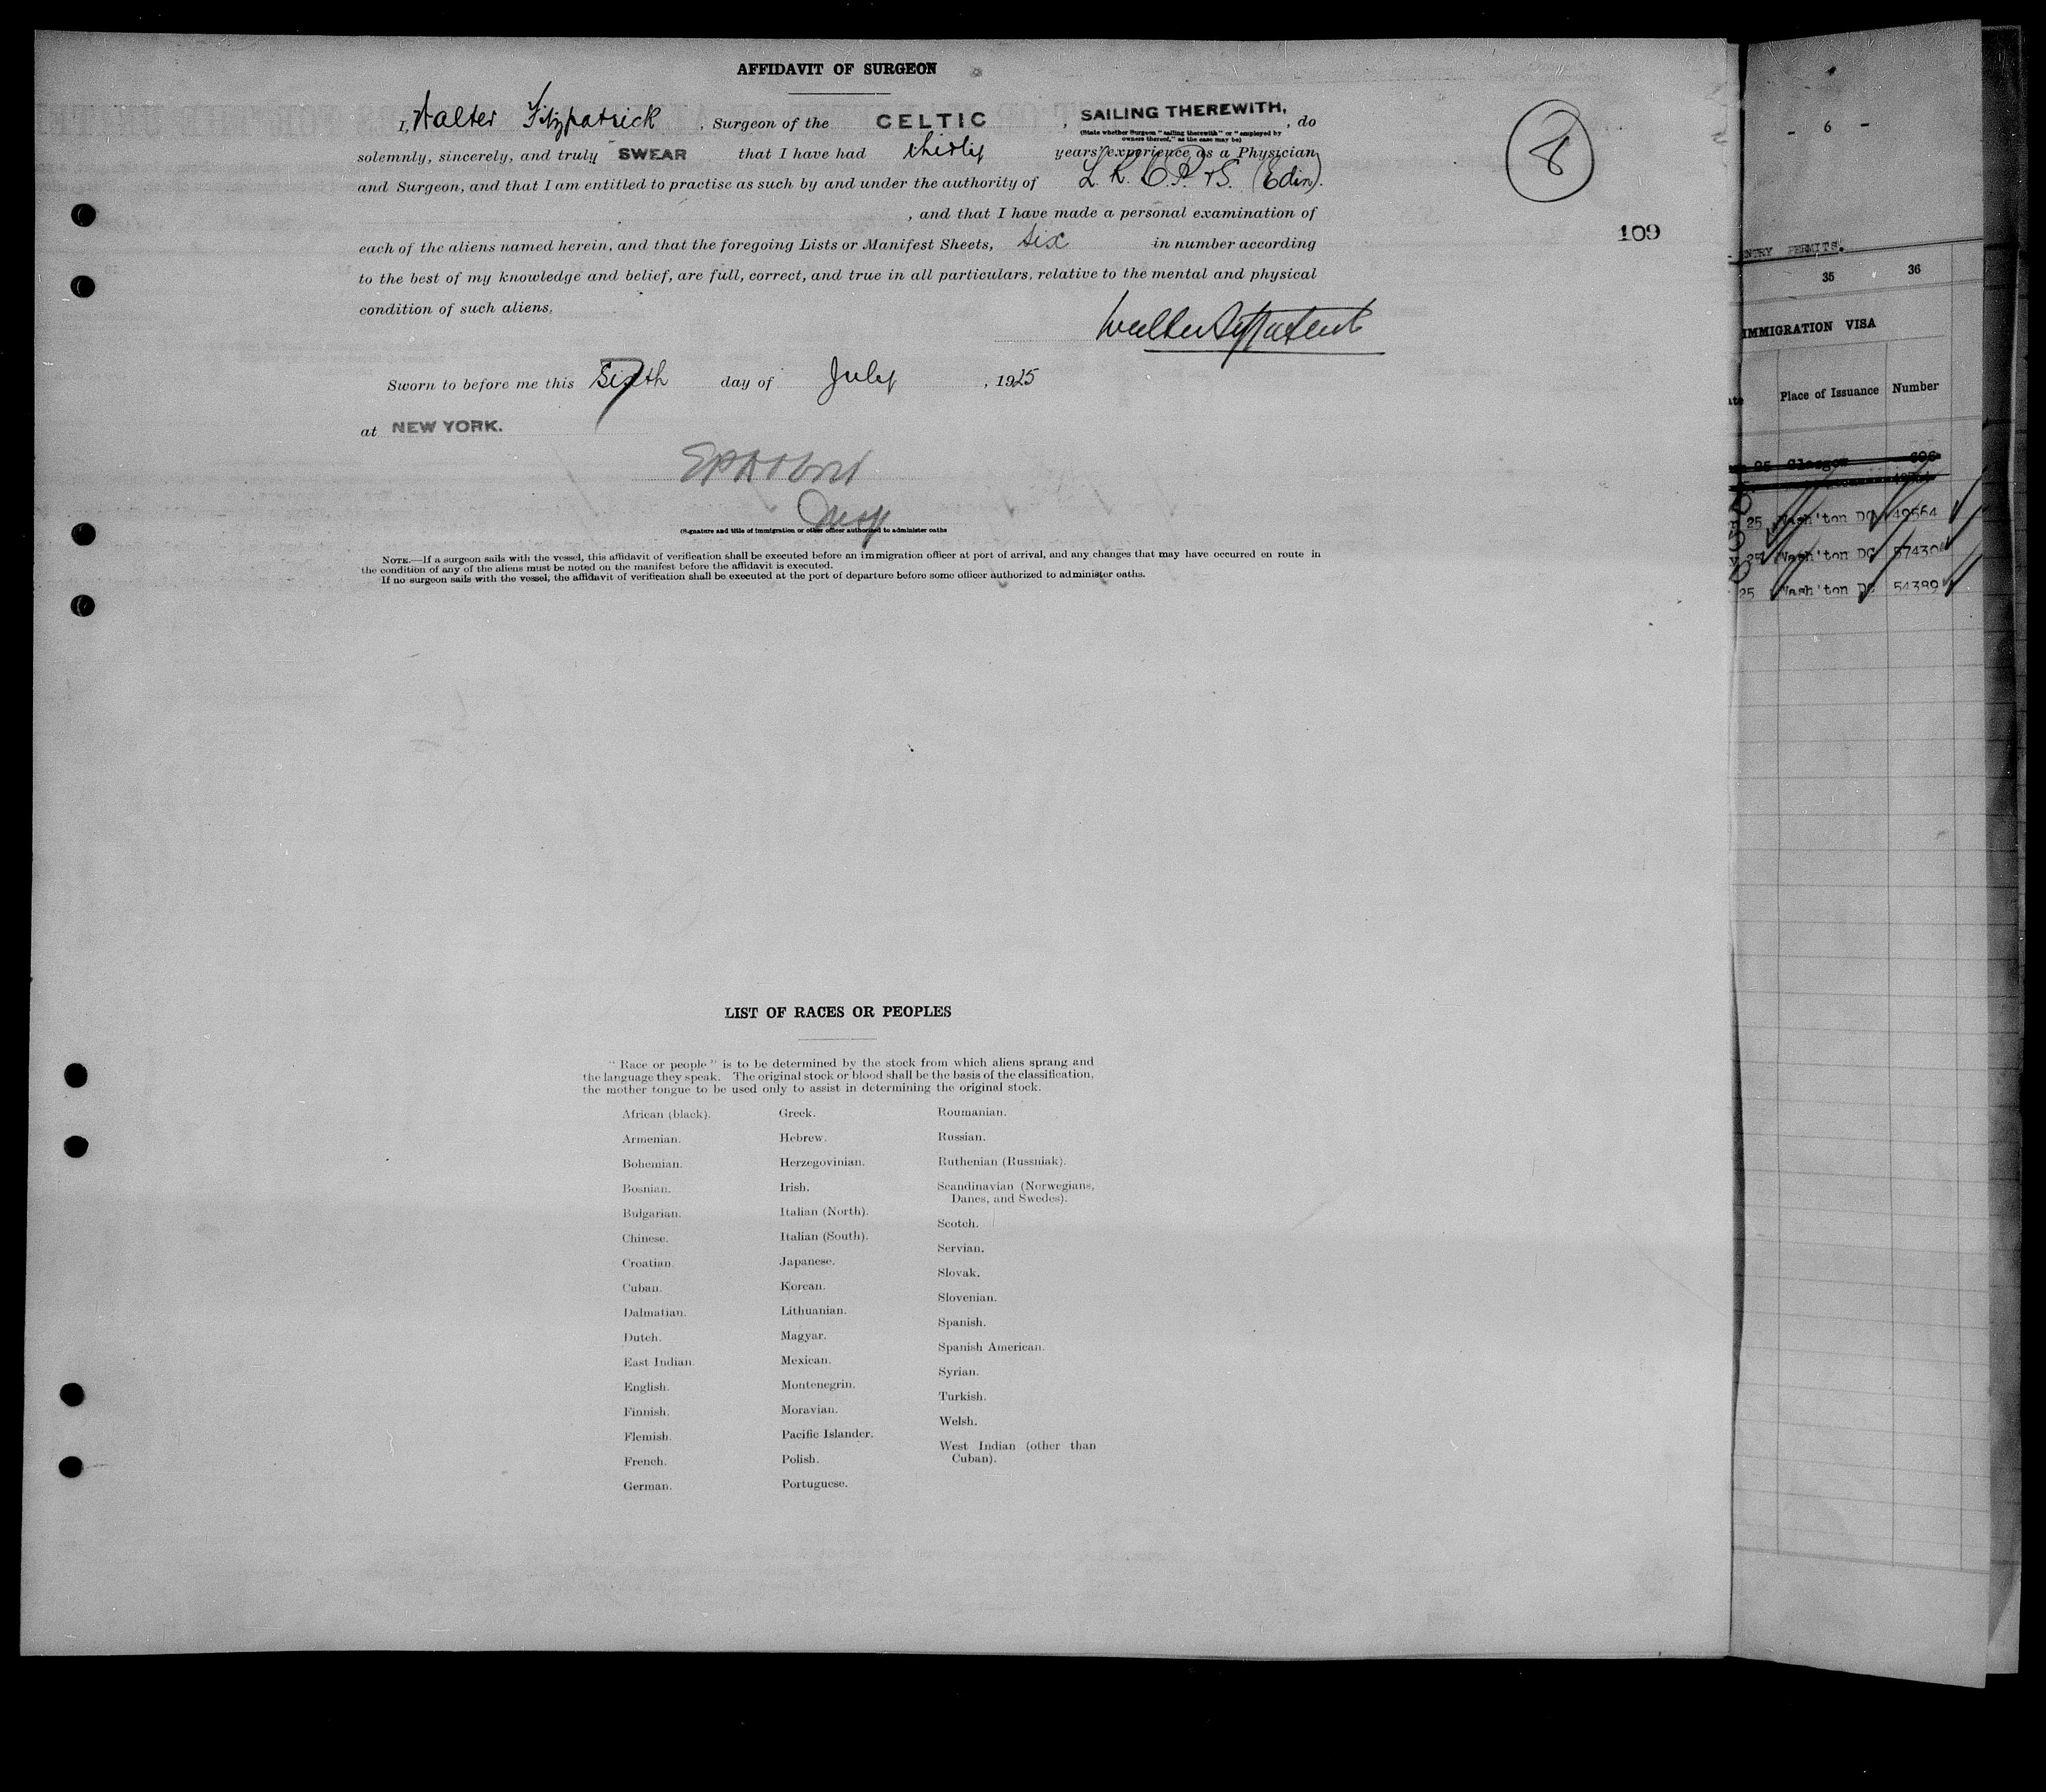 AFFIDAVIT OF SURGEON
I, Walter Fitzpatrick, Surgeon of the CELTIC, SAILING THEREWITH, do
(State whether Surgeon "sailing therewith" or "employed by
owners thereof," as the case may be)
solemnly, sincerely, and truly SWEAR that I have had thirty years' experience as a Physician
and Surgeon, and that I am entitled to practise as such by and under the authority of L. R. C. P. & S. (Edin).
, and that I have made a personal examination of
each of the aliens named herein, and that the foregoing Lists or Manifest Sheets, six in number according
to the best of my knowledge and belief, are full, correct, and true in all particulars, relative to the mental and physical
condition of such aliens.
Walter Fitzpatrick
Sworn to before me this Sixth day of July, 1925
7
at NEW YORK.
(Signature and title of immigration or other officer authorized to administer oaths
NOTE.—If a surgeon sails with the vessel, this affidavit of verification shall be executed before an immigration officer at port of arrival, and any changes that may have occurred en route in
the condition of any of the aliens must be noted on the manifest before the affidavit is executed.
If no surgeon sails with the vessel, the affidavit of verification shall be executed at the port of departure before some officer authorized to administer oaths.
8
109
LIST OF RACES OR PEOPLES
"Race or people" is to be determined by the stock from which aliens sprang and
the language they speak. The original stock or blood shall be the basis of the classification,
the mother tongue to be used only to assist in determining the original stock.
African (black).
Armenian.
Bohemian.
Bosnian.
Bulgarian.
Chinese.
Croatian.
Cuban.
Dalmatian.
Dutch.
East Indian.
English.
Finnish.
Flemish.
French.
German.
Greek.
Hebrew.
Herzegovinian.
Irish.
Italian (North).
Italian (South).
Japanese.
Korean.
Lithuanian.
Magyar.
Mexican.
Montenegrin.
Moravian.
Pacific Islander.
Polish.
Portuguese.
Roumanian.
Russian.
Ruthenian (Russniak).
Scandinavian (Norwegians,
Danes, and Swedes).
Scotch.
Servian.
Slovak.
Slovenian.
Spanish.
Spanish American.
Syrian.
Turkish.
Welsh.
West Indian (other than
Cuban).
- 6 -
ENTRY PERMITS.
35 36
IMMIGRATION VISA
Place of Issuance Number
25 Glasgow 696
25 Wash'ton DC 49664
25 Wash'ton DC 57430
25 Wash'ton DC 54389